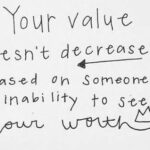 Your value
oesn't decrease
ased on someone
inability to see
your worth